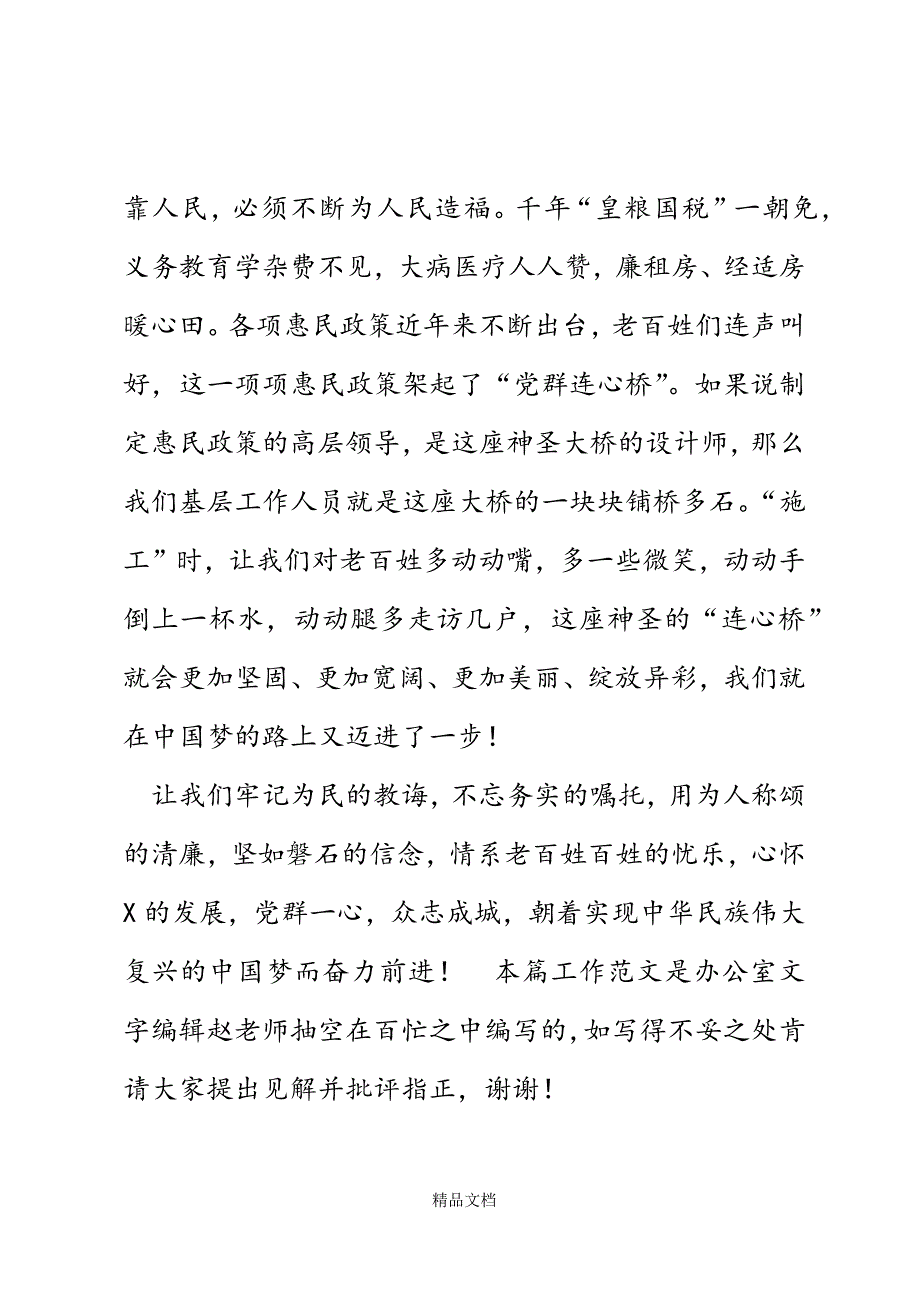 靠人民，必须不断为人民造福。千年“皇粮国税”一朝免，
义务教育学杂费不见，大病医疗人人赞，廉租房、经适房
暖心田。各项惠民政策近年来不断出台，老百姓们连声叫
好，这一项项惠民政策架起了“党群连心桥”。如果说制
定惠民政策的高层领导，是这座神圣大桥的设计师，那么
我们基层工作人员就是这座大桥的一块块铺桥多石。“施
工”时，让我们对老百姓多动动嘴，多一些微笑，动动手
倒上一杯水，动动腿多走访几户，这座神圣的“连心桥”
就会更加坚固、更加宽阔、更加美丽、绽放异彩，我们就
在中国梦的路上又迈进了一步！
让我们牢记为民的教诲，不忘务实的嘱托，用为人称颂
的清廉，坚如磐石的信念，情系老百姓百姓的忧乐，心怀
X的发展，党群一心，众志成城，朝着实现中华民族伟大
复兴的中国梦而奋力前进！ 本篇工作范文是办公室文
字编辑赵老师抽空在百忙之中编写的,如写得不妥之处肯
请大家提出见解并批评指正，谢谢！
精品文档